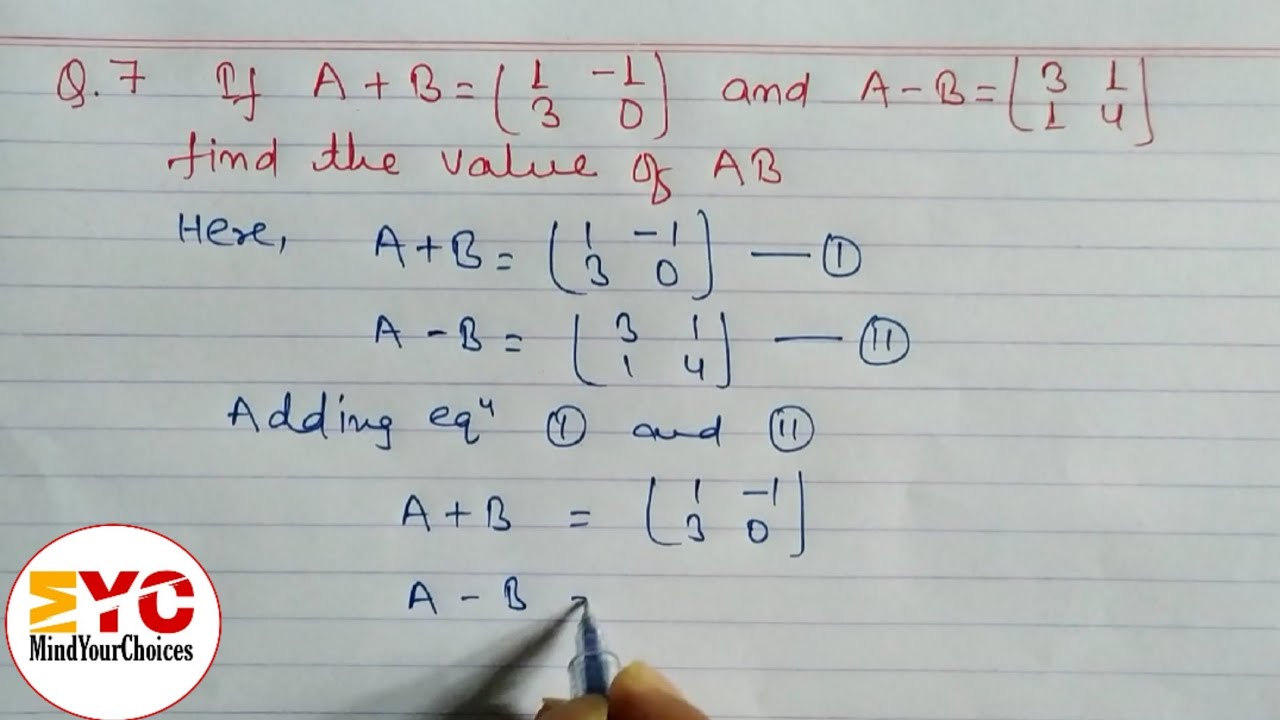 Q.7 If A + B = (1 -1 3 0) and A - B = [3 1 1 4]
find the value of AB
Here, A + B = [1 -1 3 0] — I
A - B = [3 1 1 4] — II
Adding eqⁿ I and II
A + B = [1 -1 3 0]
A - B =
MYC
MindYourChoices